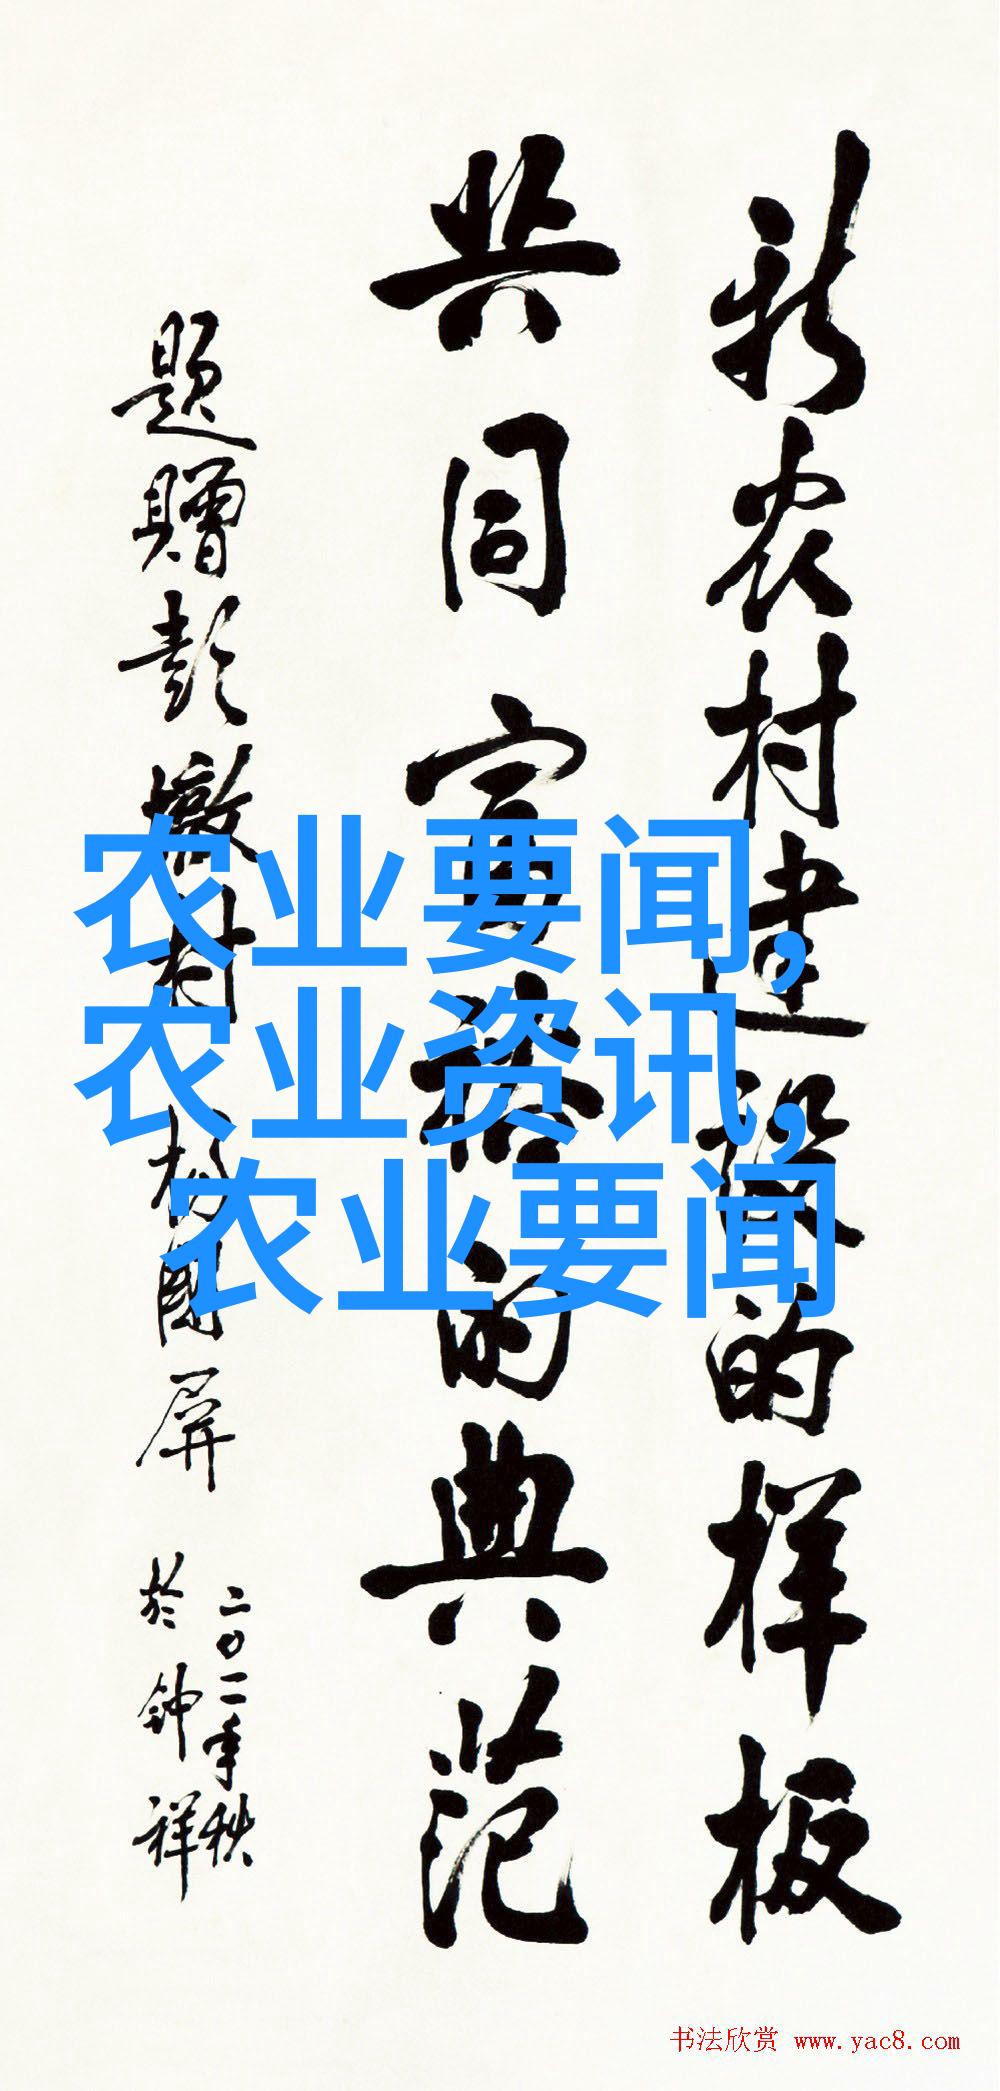 新农村建设的样板
共同富裕的典范
题赠彭墩村杨国屏
二〇一一年秋
於钟祥
农业要闻,
农业资讯,
农业要闻
书法欣赏 www.yac8.com